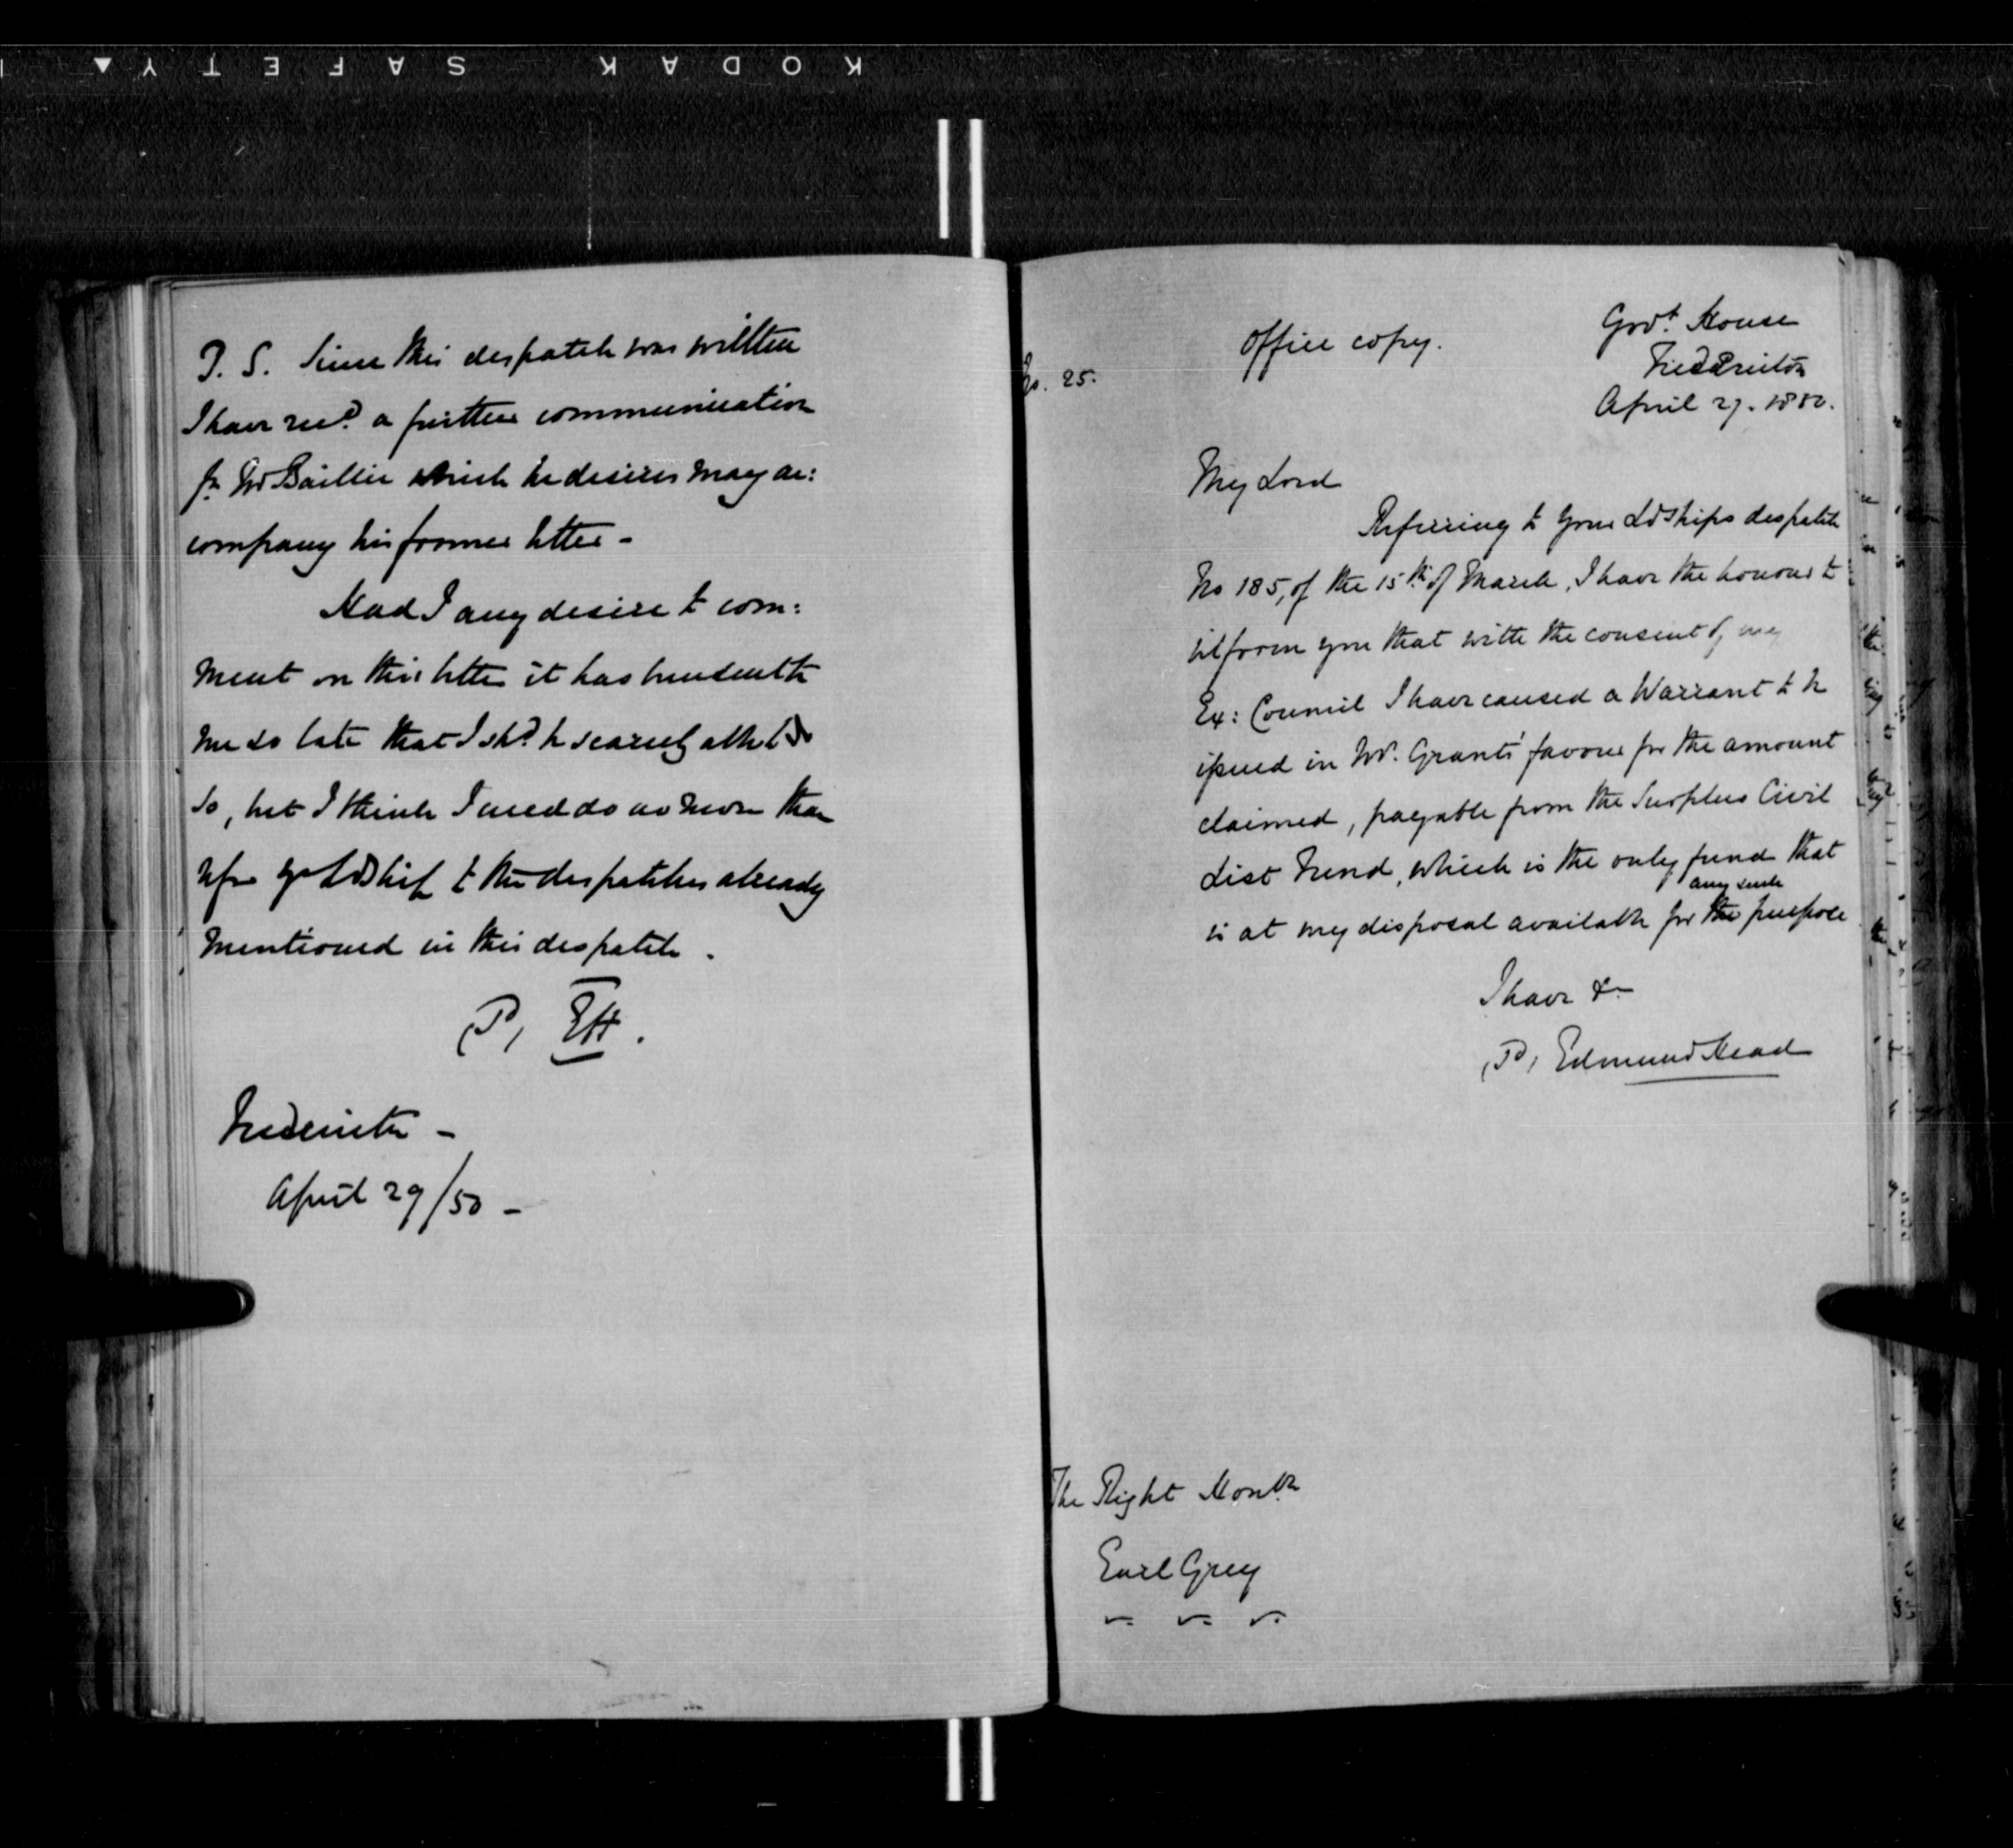 KODAK SAFETY
P. S. Since this despatch was written
I have recd. a further communication
fm Mr Baillie which he desires may ac:
company his former letter -
Had I any desire to com:
ment on this letter it has been sent to
me so late that I shd. be scarcely able to do
so, but I think I need do no more than
refer yr Ldship to the despatches already
mentioned in this despatch.
(Sd) EH.
Fredericton -
April 29/50 -
No. 25.
Office copy.
Govt. House
Fredericton
April 27. 1850.
My Lord
Referring to your Ldships despatch
No 185, of the 15th of March, I have the honour to
inform you that with the consent of my
Ex: Council I have caused a Warrant to be
issued in Mr. Grants' favour for the amount
claimed, payable from the Surplus Civil
List Fund, which is the only fund that
any such
is at my disposal available for the purpose
I have &c
(Sd) Edmund Head
The Right Honble
Earl Grey